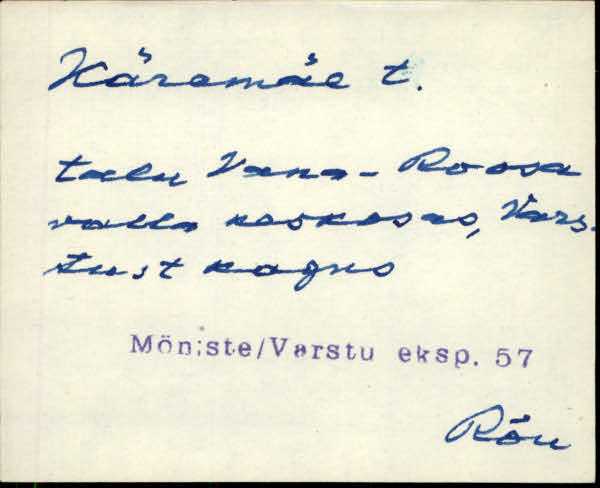 Käremäe t.
talu Vana-Roosa
valla keskosas, Vars-
tust kagus
Mõniste/Varstu eksp. 57
Rõu